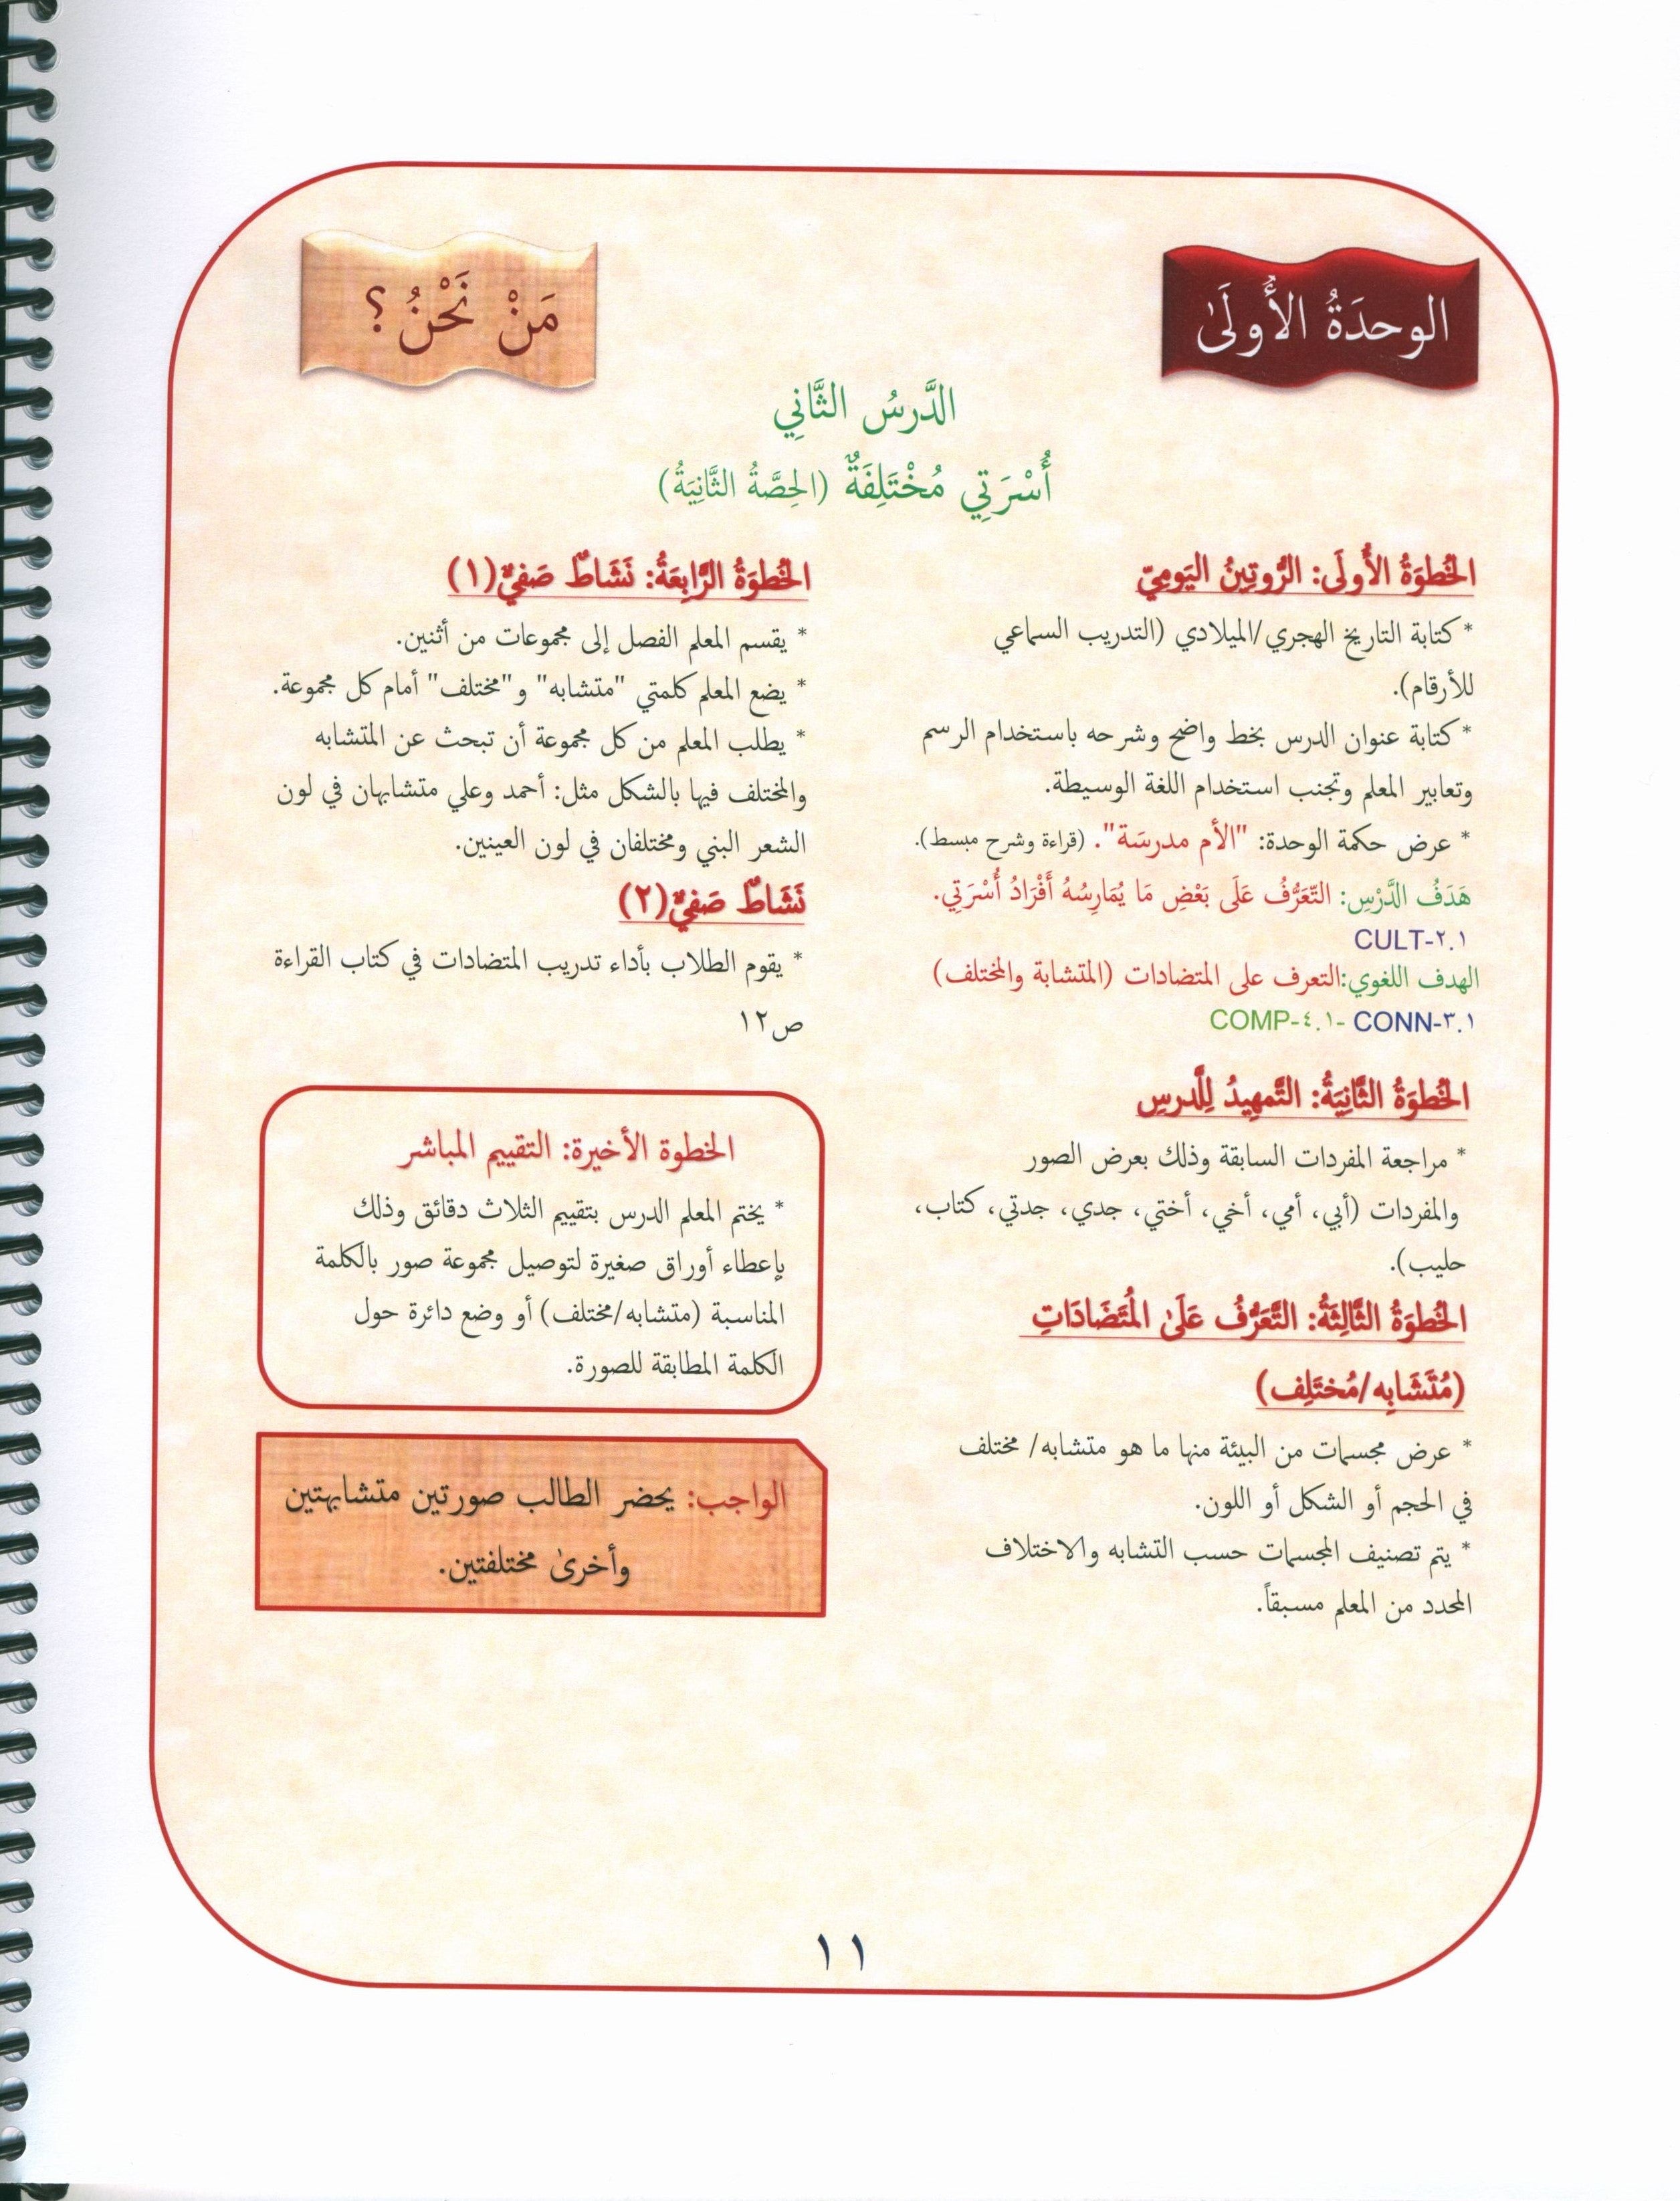 الوحدَةُ الأُولَىٰ
مَنْ نَحْنُ؟
الدَّرسُ الثَّانِي
أُسْرَتِي مُخْتَلِفَةٌ (الحِصَّةُ الثَّانِيَةُ)
الخُطوَةُ الأُولَى: الرُّوتِينُ اليَومِيّ
* كتابة التاريخ الهجري/الميلادي (التدريب السماعي
للأرقام).
* كتابة عنوان الدرس بخط واضح وشرحه باستخدام الرسم
وتعابير المعلم وتجنب استخدام اللغة الوسيطة.
* عرض حكمة الوحدة: "الأم مدرسَة". (قراءة وشرح مبسط).
هَدَفُ الدَّرْسِ: التّعَرُّفُ عَلَى بَعْضِ مَا يُمَارِسُهُ أَفْرَادُ أُسْرَتِي.
CULT-٢.١
الهدف اللغوي:التعرف على المتضادات (المتشابة والمختلف)
COMP-٤.١- CONN-٣.١
الخُطوَةُ الثَّانِيَةُ: التَّمهِيدُ لِلَّدرسِ
* مراجعة المفردات السابقة وذلك بعرض الصور
والمفردات (أبي، أمي، أخي، أختي، جدي، جدتي، كتاب،
حليب).
الخُطوَةُ الثَّالِثَةُ: التَّعَرُّفُ عَلَىٰ المُتَضَادَاتِ
(مُتَشَابِه/مُختَلِف)
* عرض مجسمات من البيئة منها ما هو متشابه/ مختلف
في الحجم أو الشكل أو اللون.
* يتم تصنيف المجسمات حسب التشابه والاختلاف
المحدد من المعلم مسبقاً.
الخُطوَةُ الرَّابِعَةُ: نَشَاطٌ صَفيٌّ(١)
* يقسم المعلم الفصل إلى مجموعات من أثنين.
* يضع المعلم كلمتي "متشابه" و"مختلف" أمام كل مجموعة.
* يطلب المعلم من كل مجموعة أن تبحث عن المتشابه
والمختلف فيها بالشكل مثل: أحمد وعلي متشابهان في لون
الشعر البني ومختلفان في لون العينين.
نَشَاطٌ صَفيٌّ(٢)
* يقوم الطلاب بأداء تدريب المتضادات في كتاب القراءة
ص١٢
الخطوة الأخيرة: التقييم المباشر
* يختم المعلم الدرس بتقييم الثلاث دقائق وذلك
بإعطاء أوراق صغيرة لتوصيل مجموعة صور بالكلمة
المناسبة (متشابه/مختلف) أو وضع دائرة حول
الكلمة المطابقة للصورة.
الواجب: يحضر الطالب صورتين متشابهتين
وأخرىٰ مختلفتين.
١١